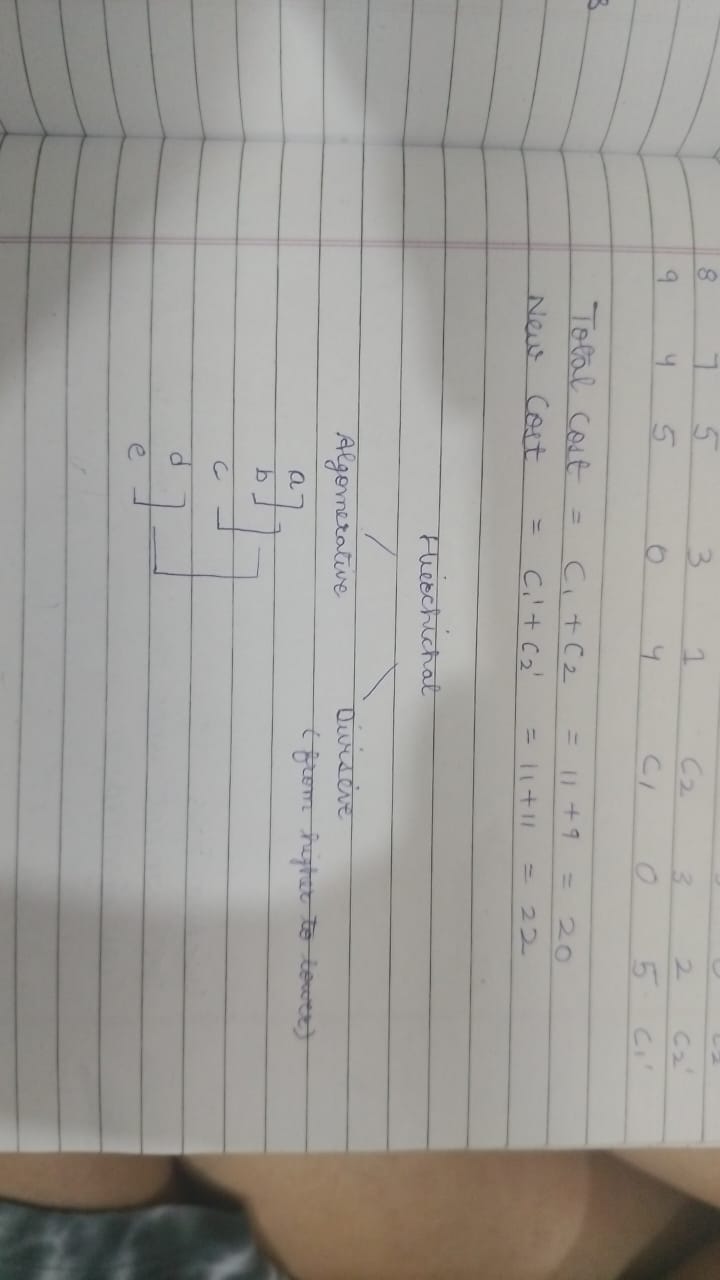 8 7 5 3 1 C2 3 2 C2'
9 4 5 0 4 C1 0 5 C1'
Total Cost = C1 + C2 = 11 + 9 = 20
New Cost = C1' + C2' = 11 + 11 = 22
Hierchichal
Algomerative Divisive
(from higher to lower)
a
b
c
d
e